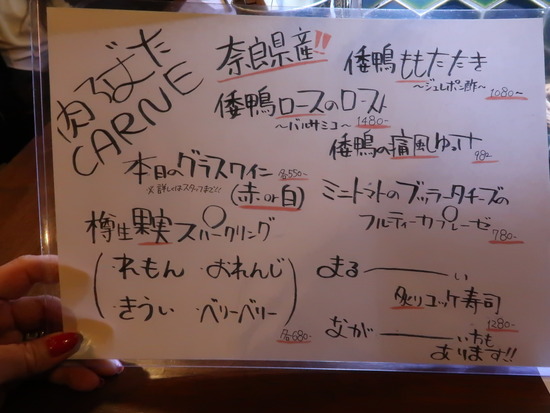 肉ろばた
CARNE
奈良県産!!
倭鴨ロースのロースト
〜バルサミコ〜 1480-
倭鴨ももだたき
〜ジュレポン酢〜 1080-
倭鴨の痛風ゆっけ
982-
本日のグラスワイン 各550-
※詳しくはスタッフまで!! (赤or白)
ミニトマトのブッラータチーズの
フルーティーカプレーゼ
780-
樽生果実スパークリング
・れもん ・おれんじ
・きうぃ ・ベリーベリー
各680-
まる――い
炙りユッケ寿司
1280-
なが――いねも
あります!!